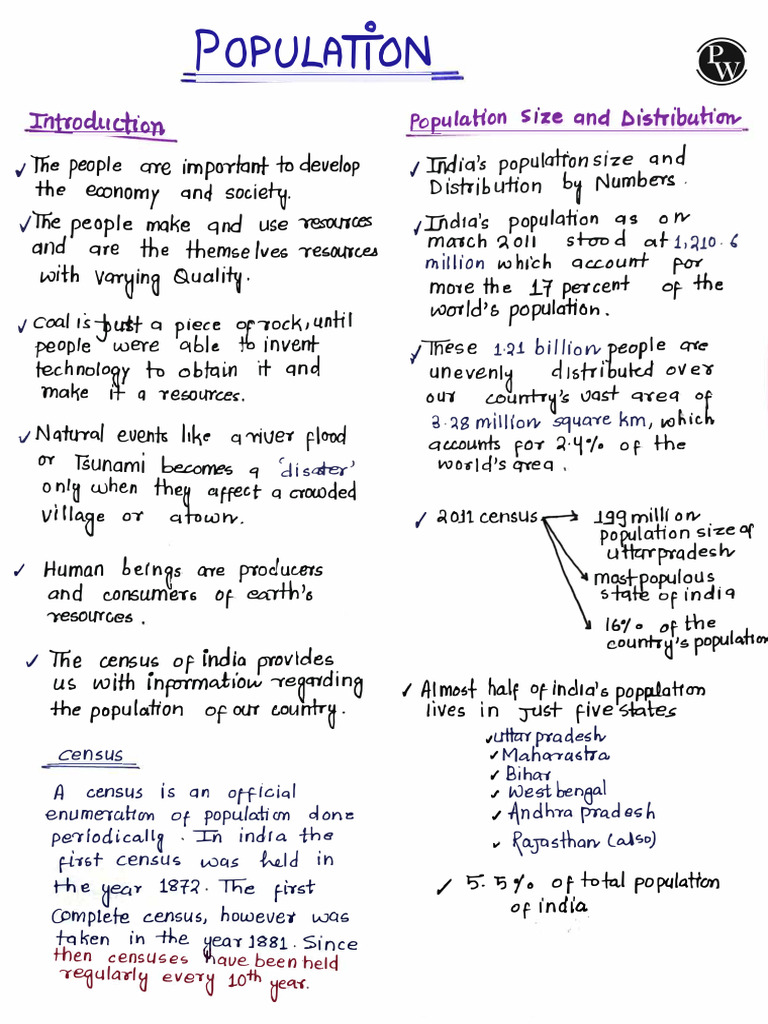 POPULATION
PW
Introduction
✓ The people are important to develop
the economy and society.
✓ The people make and use resources
and are the themselves resources
with varying Quality.
✓ Coal is just a piece of rock, until
people were able to invent
technology to obtain it and
make it a resources.
✓ Natural events like a river flood
or Tsunami becomes a 'disater'
only when they affect a crowded
village or atown.
✓ Human beings are producers
and consumers of earth's
resources.
✓ The census of india provides
us with information regarding
the population of our country.
Census
A census is an official
enumeration of population done
periodically. In india the
first census was held in
the year 1872. The first
complete census, however was
taken in the year 1881. Since
then censuses have been held
regularly every 10th year.
Population Size and Distribution
✓ India's population size and
Distribution by Numbers.
✓ India's population as on
march 2011 stood at 1,210.6
million which account for
more the 17 percent of the
world's population.
✓ These 1.21 billion people are
unevenly distributed over
our country's vast area of
3.28 million square km, which
accounts for 2.4% of the
world's area.
✓ 2011 census → 199 million
population size of
uttar pradesh
→ most populous
state of india
→ 16% of the
country's population
✓ Almost half of india's population
lives in just five states
✓ uttar pradesh
✓ Maharastra
✓ Bihar
✓ West bengal
✓ Andhra pradesh
✓ Rajasthan (also)
✓ 5.5% of total population
of india